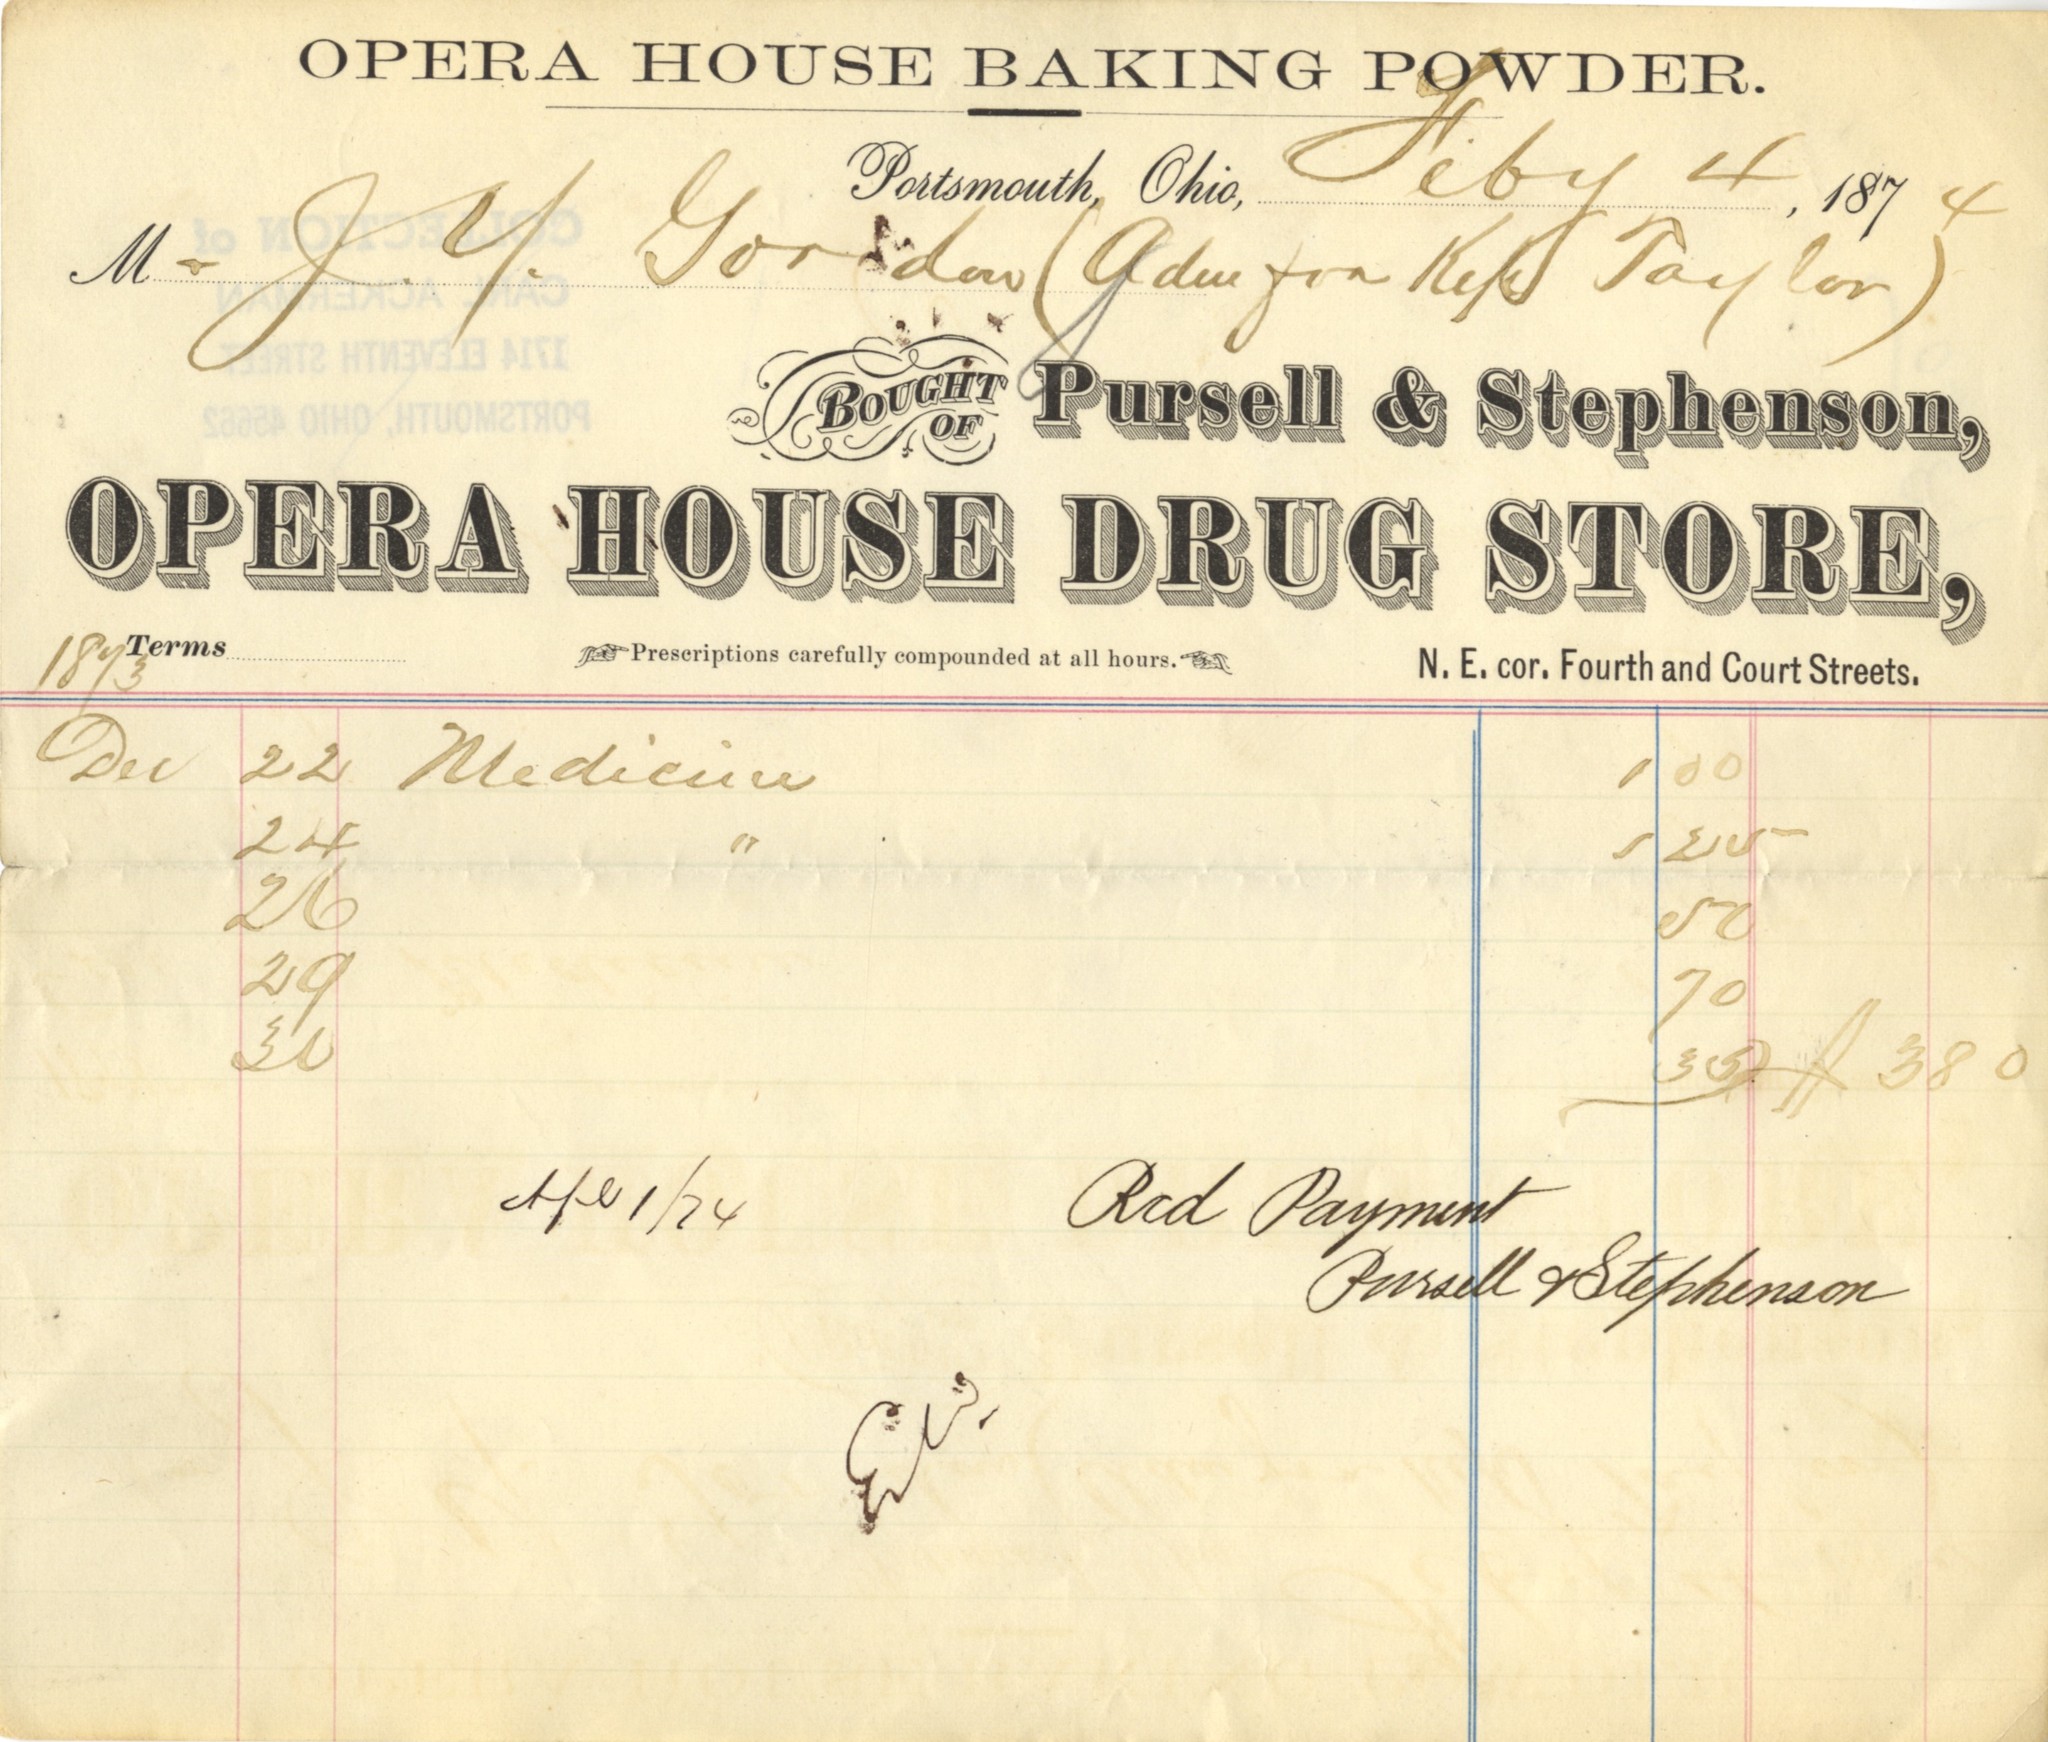 OPERA HOUSE BAKING POWDER.
Portsmouth, Ohio, Feby 4, 1874
Mr J. Y. Gordon (Adm for Taylor)
BOUGHT OF Pursell & Stephenson,
OPERA HOUSE DRUG STORE,
1873 Terms Prescriptions carefully compounded at all hours. N. E. cor. Fourth and Court Streets.
Dec 22 Medicine 1 00
24 " 1 25
26 50
29 70
30 35 $ 3 80
Apl 1/74 Recd Payment
Pursell & Stephenson
COLLECTION of
CARL ACKERMAN
1714 ELEVENTH STREET
PORTSMOUTH, OHIO 45662